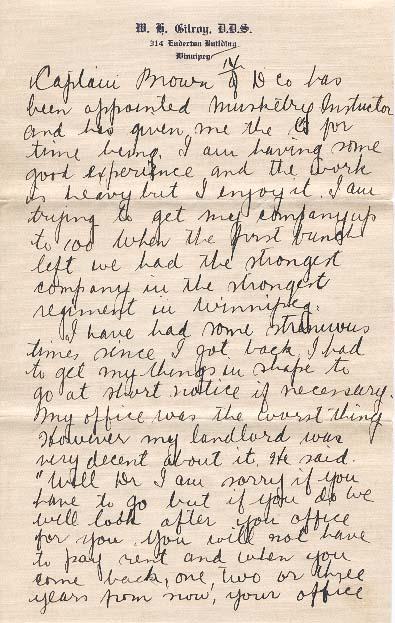 W. H. Gilroy, D.D.S.
314 Enderton Building
Winnipeg
Captain Brown of D Co has
been appointed Musketry Instuctor
and has given me the Co for
time being. I am having some
good experience and the work
is heavy but I enjoy it. I am
trying to get my company up
to 100 When the first bunch
left we had the strongest
company in the strongest
regiment in Winnipeg.
I have had some strenuous
times since I got back I had
to get my things in shape to
go at short notice if necessary.
My office was the worst thing
However my landlord was
very decent about it. He said.
"Well Dr I am sorry if you
have to go but if you do we
will look after you office
for you You will not have
to pay rent and when you
come back, one, two or three
years from now, your office